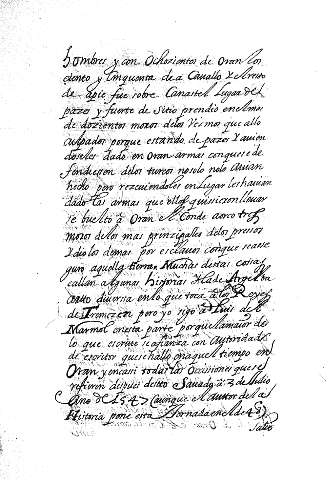 hombres y con Ochozientos de Oran los
ciento y Cinquenta de a Cavallo y el resto
de apie fue sobre Canastel Lugar de
pazes y fuerte de sitio prendio en el mas
de dozientos moros de los Vesinos que allo
culpados porque estando de pazes y avien
doseles dado en Oran armas con que se de
fendiesen de los turcos no solo no lo avian
hecho por rezeuiendoles en Lugar les havian
dado las armas que ellos quisieron lleuar
se buelto à Oran el Conde aorco tres
moros de los mas principales de los presos
y dio los demas por esclauos con que se ase
guro aquella tierra Muchas destas cosas
callan algunas historias la de Argel ba
tanto diversa en lo que toca a los Reyes
de Tremezen pero yo sigo a Luis de el
Marmol en esta parte porque la maior de
lo que escriue se afianza con autoridades
de escritor que se hallo en aquel tiempo en
Oran y en casi todas las Occasiones que se
refieren despues desto Savado a 2 de Julio
Año de 1547 (aunque el autor de la
Historia pone esta Jornada en el de 48)
salio